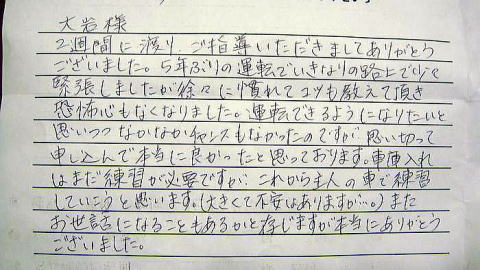 大岩様
2週間に渡り、ご指導いただきましてありがとう
ございました。5年ぶりの運転でいきなりの路上で少々
緊張しましたが徐々に慣れてコツも教えて頂き
恐怖心もなくなりました。運転できるようになりたいと
思いつつなかなかチャンスもなかったのですが思い切って
申し込んで本当に良かったと思っております。車庫入れ
はまだ練習が必要ですが、これから主人の車で練習
していこうと思います。(大きくて不安はありますが…。)また
お世話になることもあるかと存じますが本当にありがとう
ございました。